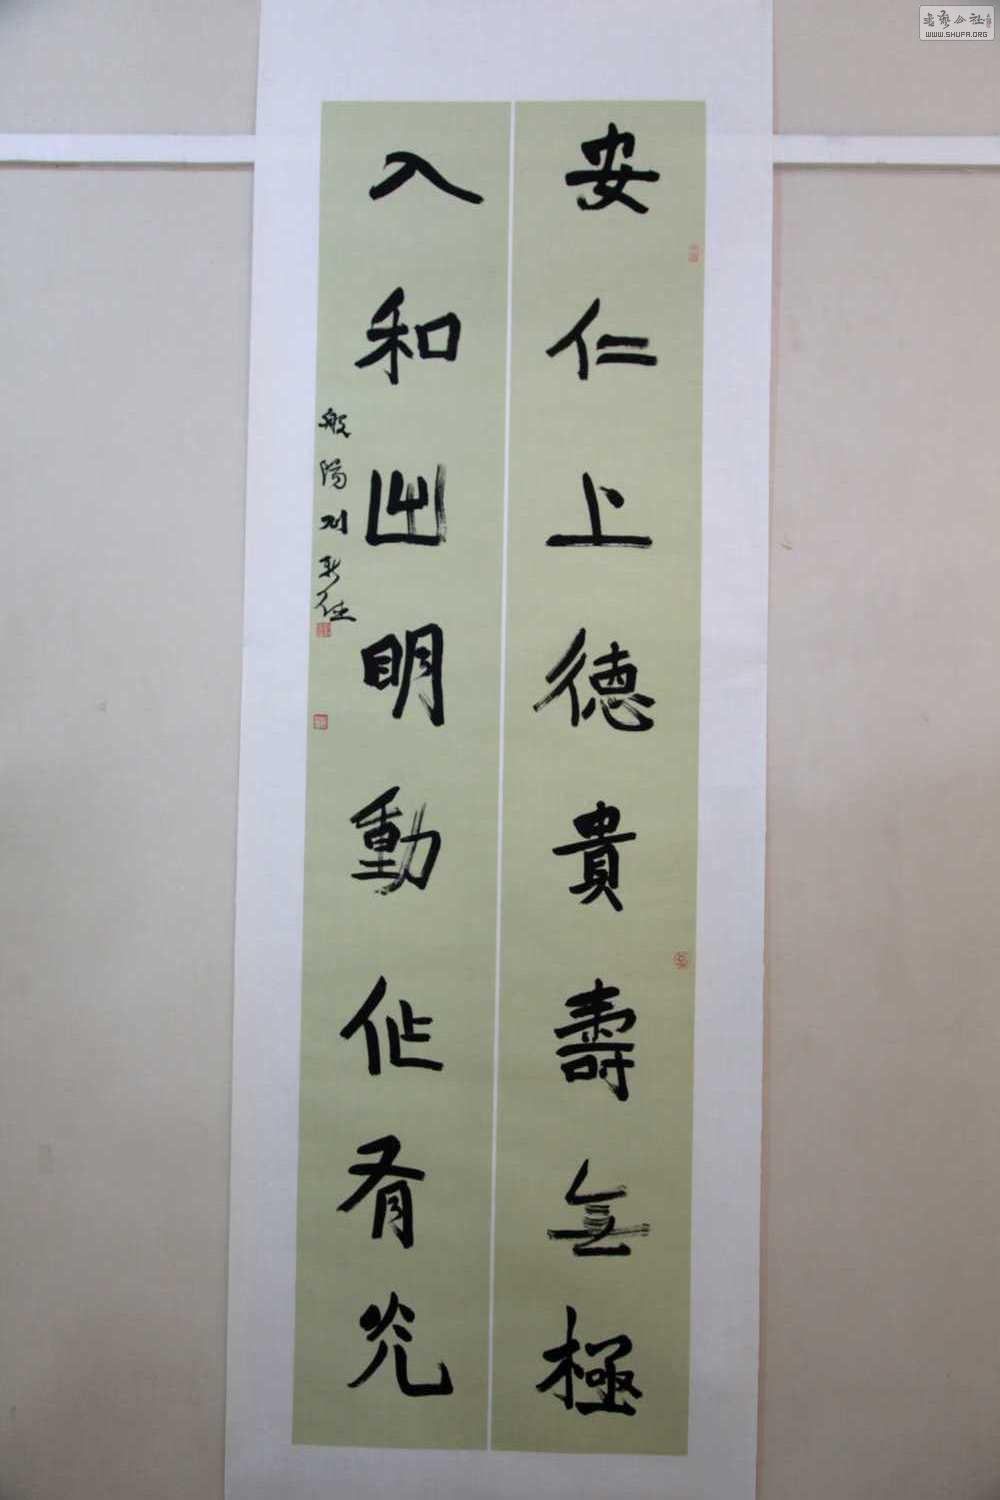 安仁上德貴壽無極
入和出明動作有光
般陽劉新任
书艺公社
WWW.SHUFA.ORG